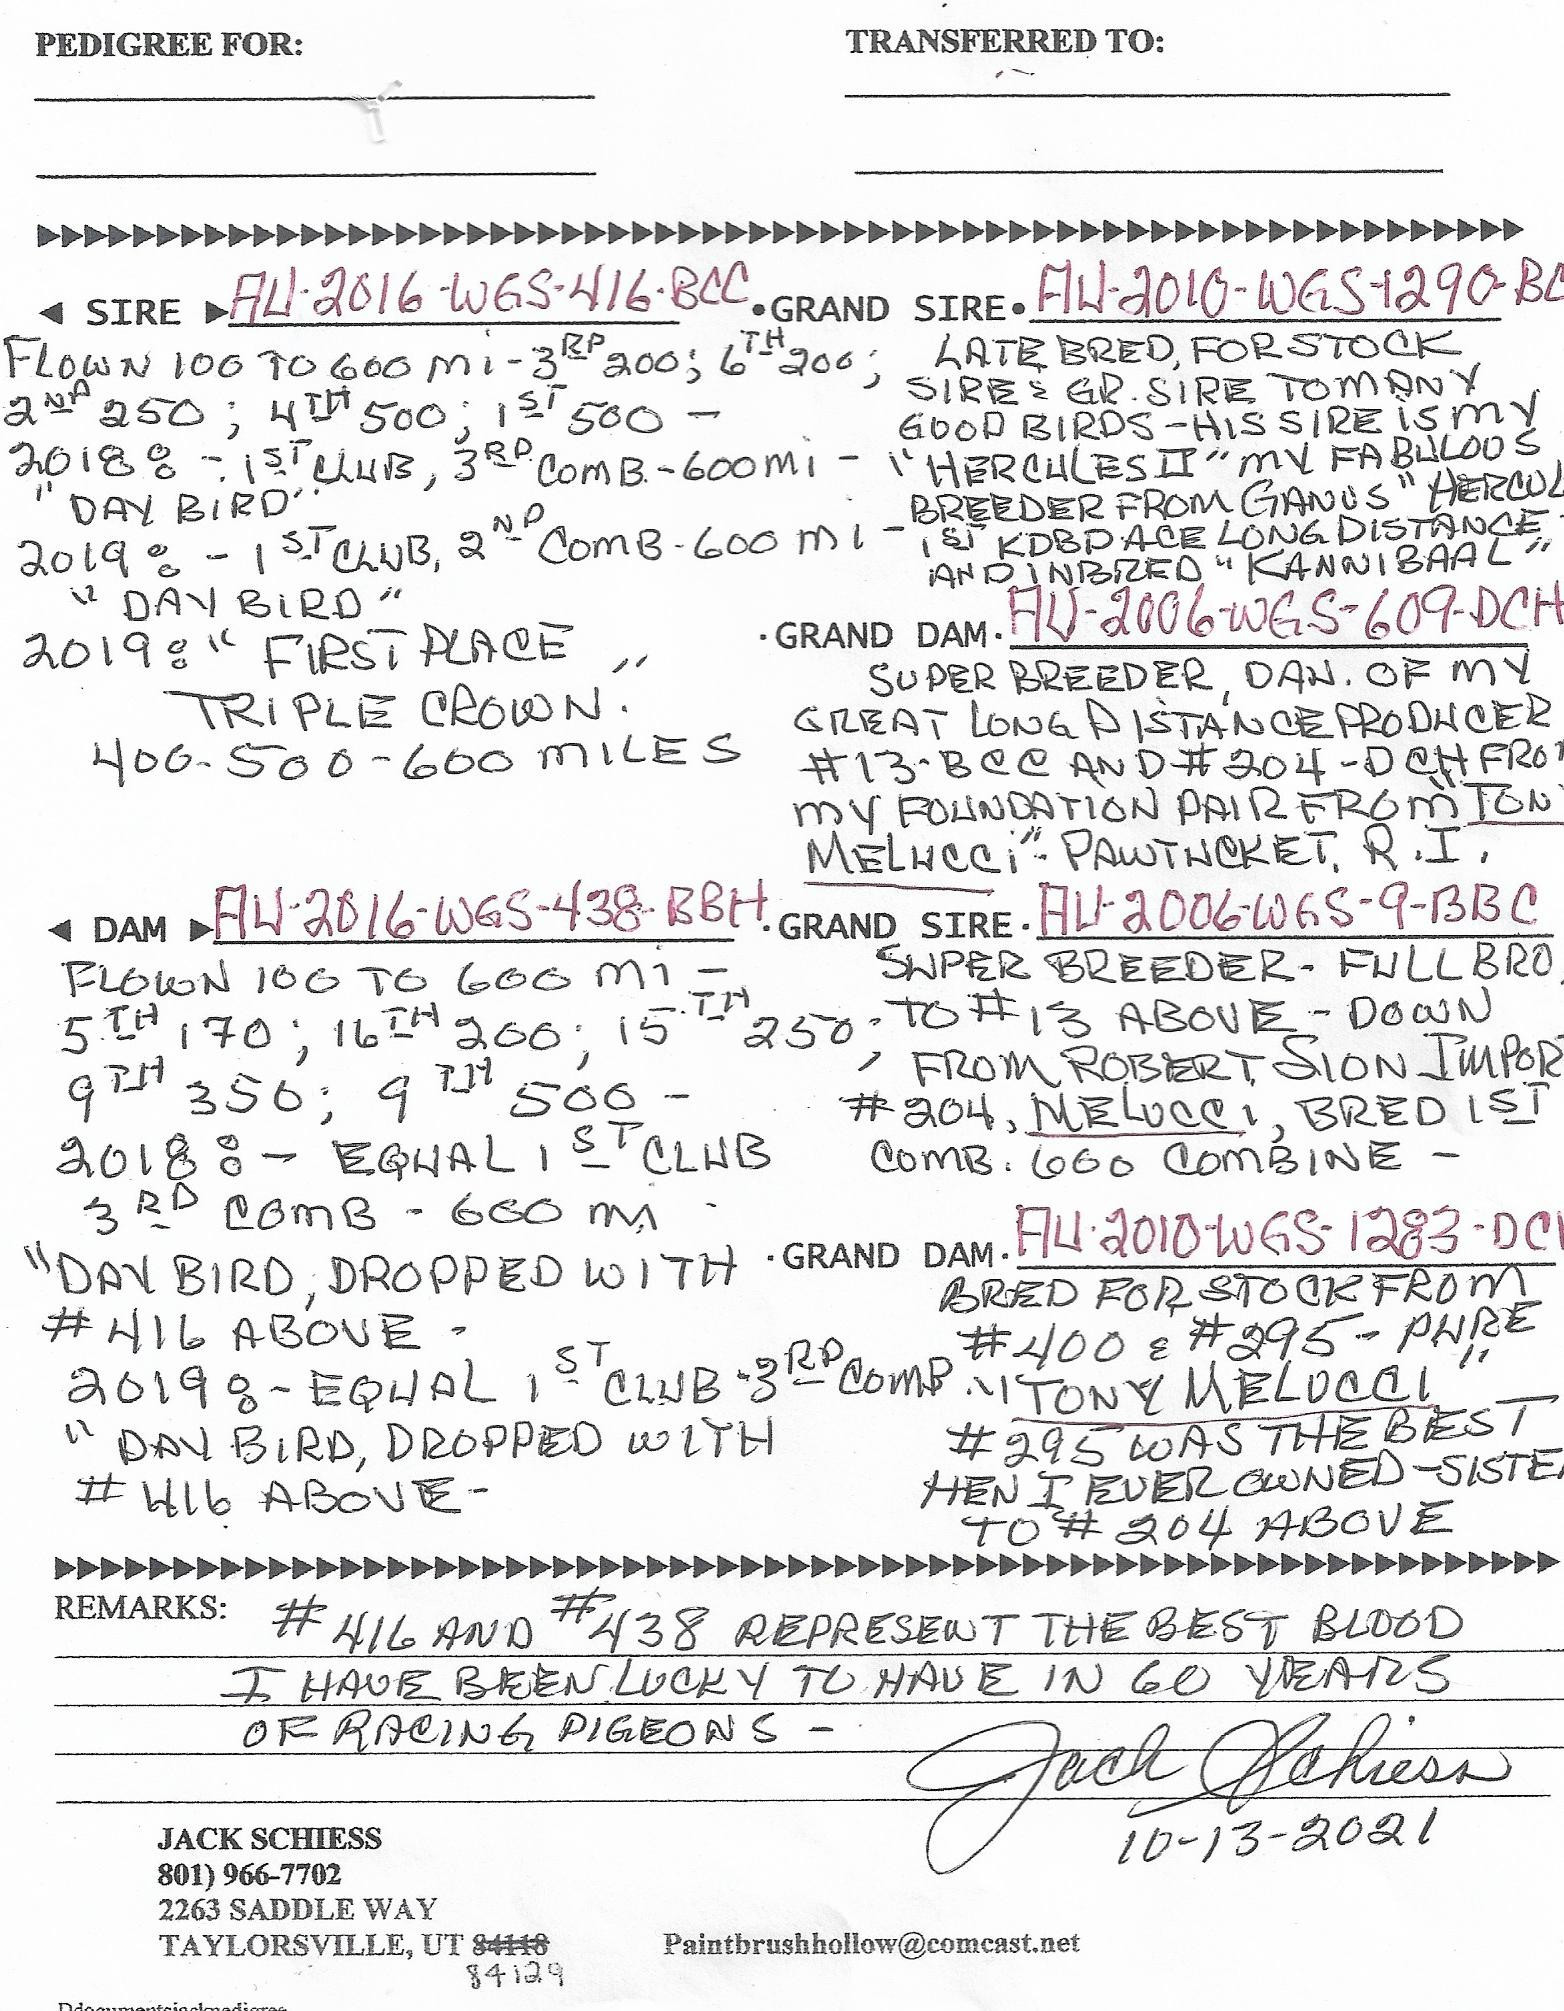 PEDIGREE FOR:
TRANSFERRED TO:
◄ SIRE ► AU-2016-WGS-416-BCC
FLOWN 100 TO 600 mi - 3RD 200; 6TH 200;
2ND 250; 4TH 500; 1ST 500 -
2018: - 1ST CLUB, 3RD COMB.-600 mi -
"DAY BIRD"
2019: - 1ST CLUB, 2ND COMB-600 mi -
"DAY BIRD"
2019: "FIRST PLACE
TRIPLE CROWN."
400-500-600 MILES
•GRAND SIRE• AU-2010-WGS-1290-BC
LATE BRED, FOR STOCK
SIRE & GR. SIRE TO MANY
GOOD BIRDS - HIS SIRE IS MY
"HERCULES II" MY FABULOUS
BREEDER FROM GANUS "HERCUL
1ST KDBD ACE LONG DISTANCE
AND INBRED "KANNIBAAL"
·GRAND DAM· AU-2006-WGS-609-DCH
SUPER BREEDER, DAU. OF MY
GREAT LONG DISTANCE PRODUCER
#13-BCC AND #204-DCH FRO
MY FOUNDATION PAIR FROM "TON
MELUCCI"- PAWTUCKET, R.I.
◄ DAM ► AU-2016-WGS-438-BBH
FLOWN 100 TO 600 mi -
5TH 170; 16TH 200; 15TH 250;
9TH 350; 9TH 500 -
2018: - EQUAL 1ST CLUB
3RD COMB - 600 mi -
"DAY BIRD, DROPPED WITH
#416 ABOVE -
2019: - EQUAL 1ST CLUB-3RD COMB.
"DAY BIRD, DROPPED WITH
#416 ABOVE -
·GRAND SIRE· AU-2006-WGS-9-BBC
SUPER BREEDER- FULL BRO.
TO #13 ABOVE - DOWN
FROM ROBERT SION IMPOR
#204, MELUCCI, BRED 1ST
COMB. 600 COMBINE -
·GRAND DAM· AU-2010-WGS-1283-DC
BRED FOR STOCK FROM
#400 & #295 - PURE
"TONY MELUCCI"
#295 WAS THE BEST
HEN I EVER OWNED - SISTE
TO #204 ABOVE
REMARKS: #416 AND #438 REPRESENT THE BEST BLOOD
I HAVE BEEN LUCKY TO HAVE IN 60 YEARS
OF RACING PIGEONS -
Jack Schiess
10-13-2021
JACK SCHIESS
801) 966-7702
2263 SADDLE WAY
TAYLORSVILLE, UT 84118
84129
Paintbrushhollow@comcast.net
Ddocumentsjackpedigree